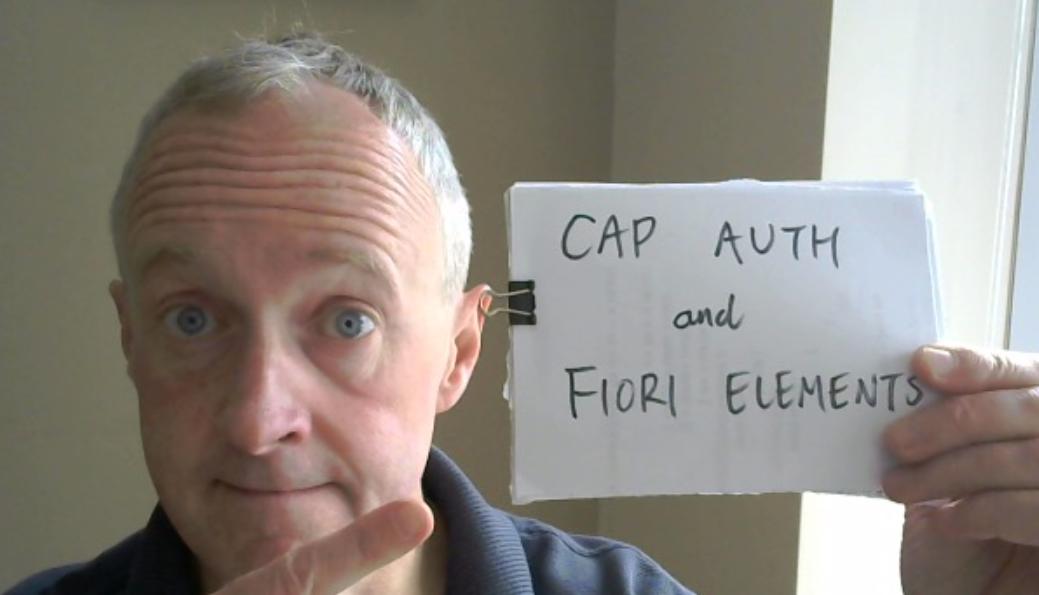 CAP AUTH
and
FIORI ELEMENTS